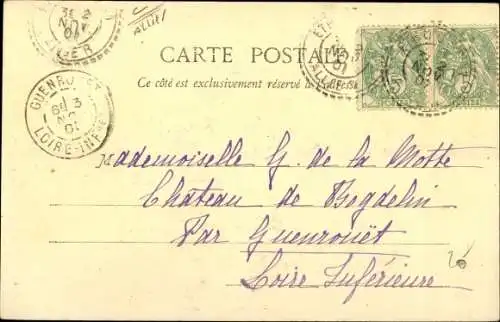 CARTE POSTALE
Ce côté est exclusivement réservé à l'adresse
GUENROUET
3
NO
01
LOIRE-INFRE
Mademoiselle G. de la Motte
Château de Bogdelin
Par Guenrouët
Loire Inférieure